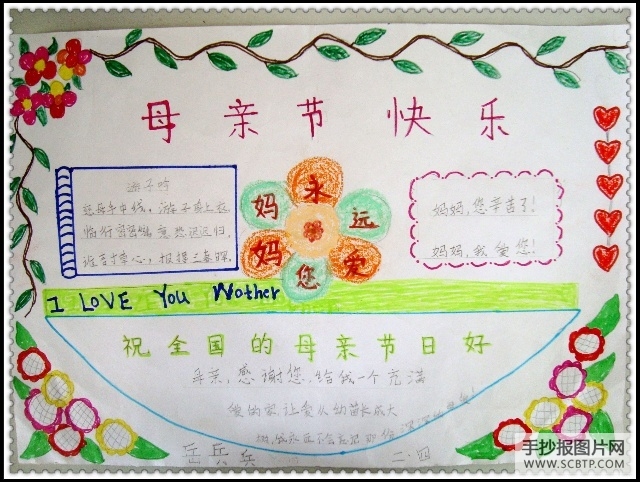 母亲节快乐
游子吟
慈母手中线，游子身上衣
临行密密缝，意恐迟迟归，
谁言寸草心，报得三春晖
妈 永 远
妈 您 爱
妈妈，您辛苦了！
妈妈，我爱您！
I LOVE You Wother
祝全国的母亲节日好
母亲，感谢您，给我一个充满
爱的家让爱从幼苗长成大
岳兵兵 二·四
手抄报图片网
WWW.SCBTP.COM